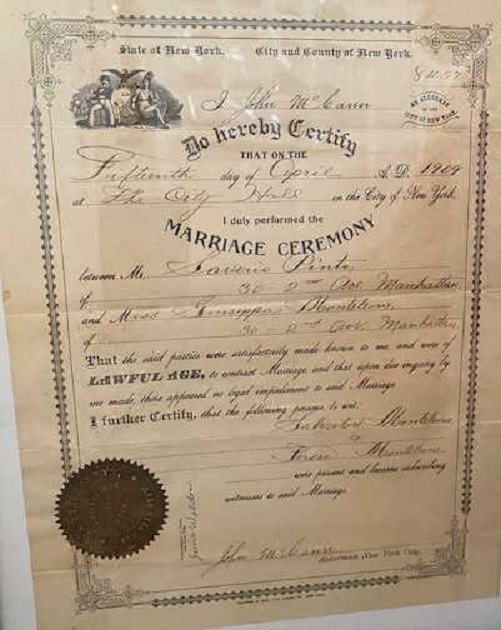 State of New York. City and County of New York.
I John McCann
AN ALDERMAN
OF THE
CITY OF NEW YORK
Do hereby Certify
THAT ON THE
Fifteenth day of April A.D. 1909
at The City Hall in the City of New York.
I duly performed the
MARRIAGE CEREMONY
between Mr. Saverio Pinto
of 30 - 2nd Ave. Manhattan,
and Miss Giuseppa Monteleone,
of 30 - 2nd Ave. Manhattan,
That the said parties were satisfactorily made known to me, and were of
LAWFUL AGE, to contract Marriage, and that upon due inquiry by
me made, there appeared no legal impediment to said Marriage
I further Certify, that the following persons to wit:
Salvatore Monteleone
Monteleone
were present and became subscribing
witnesses to said Marriage.
John McCann
Alderman, New York City.